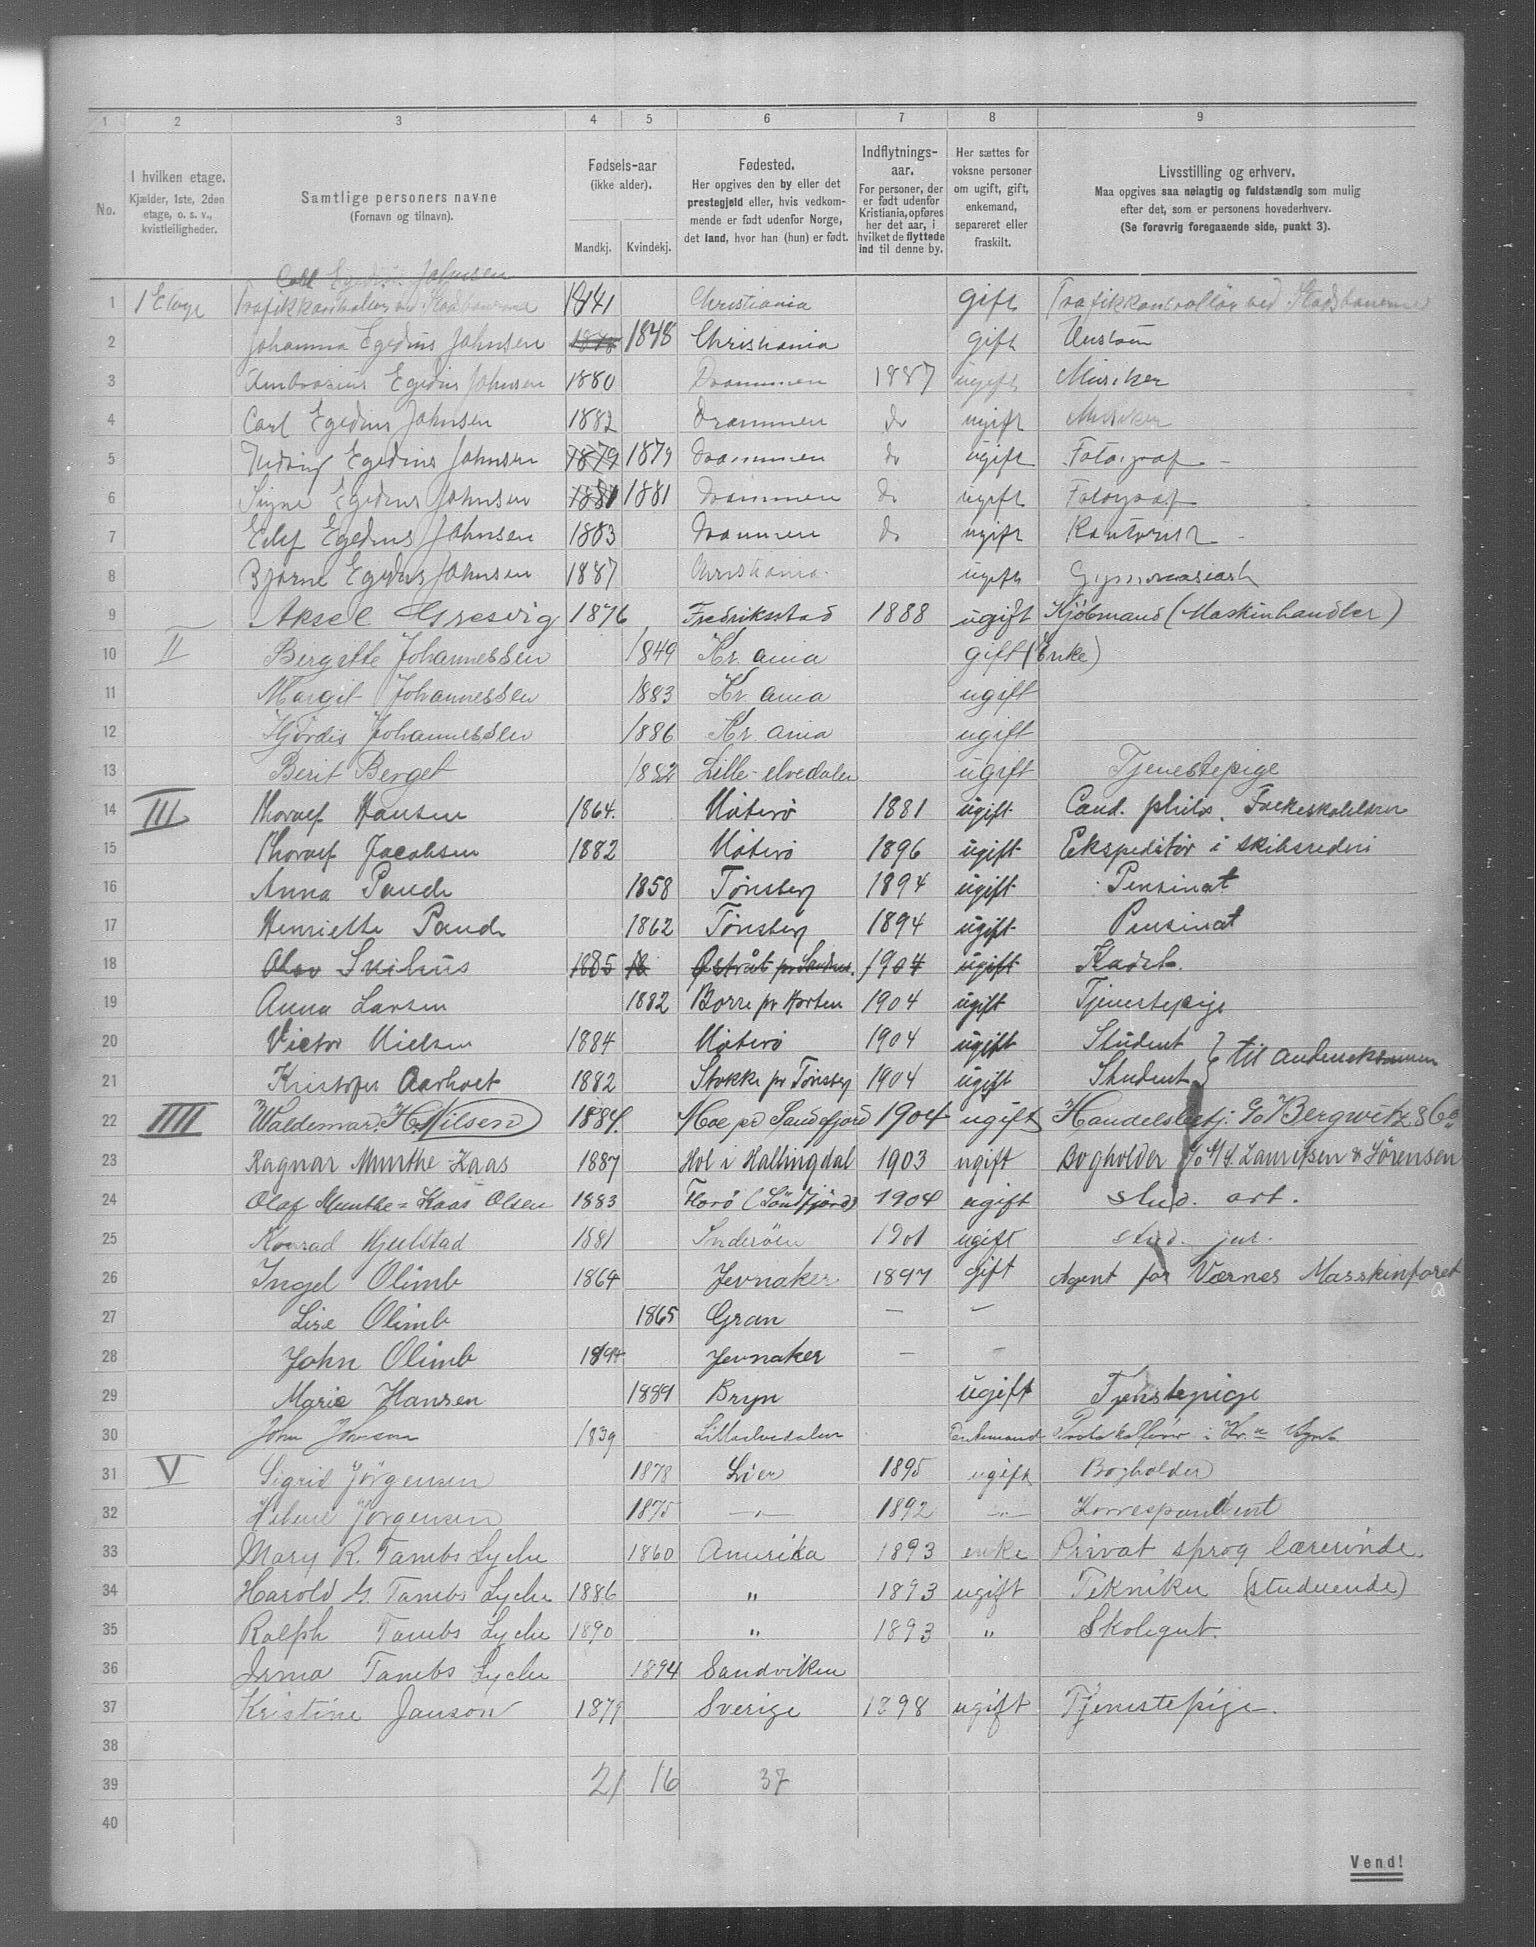 1 2 3 4 5 6 7 8 9
No. I hvilken etage. Kjælder, 1ste, 2den etage, o. s. v., kvistleiligheder. Samtlige personers navne (Fornavn og tilnavn). Fødsels-aar (ikke alder). Mandkj. Kvindekj. Fødested. Her opgives den by eller det prestegjeld eller, hvis vedkommende er født udenfor Norge, det land, hvor han (hun) er født. Indflytnings-aar. For personer, der er født udenfor Kristiania, opføres her det aar, i hvilket de flyttede ind til denne by. Her sættes for voksne personer om ugift, gift, enkemand, separeret eller fraskilt. Livsstilling og erhverv. Maa opgives saa nøiagtig og fuldstændig som mulig efter det, som er personens hovederhverv. (Se forøvrig foregaaende side, punkt 3).
Carl Egedius Johnsen
1 1 Etage Trafikkontrollør ved Stadsbanerne 1841 Christiania gift Trafikkontrollør ved Stadsbanerne
2 Johanna Egedius Johnsen 1848 1848 Christiania gift Hustru
3 Ambrosius Egedius Johnsen 1880 Drammen 1887 ugift Musiker
4 Carl Egedius Johnsen 1882 Drammen do ugift Musiker
5 Hedvig Egedius Johnsen 1879 1879 Drammen do ugift Fotograf
6 Signe Egedius Johnsen 1881 1881 Drammen do ugift Fotograf
7 Eilif Egedius Johnsen 1883 Drammen do ugift Kontorist
8 Bjarne Egedius Johnsen 1887 Christiania ugift Gymnasiast
9 Aksel Gresvig 1876 Fredriksstad 1888 ugift Kjöbmand (Maskinhandler)
10 II Bergette Johannessen 1849 Kr. ania gift (Enke)
11 Margit Johannessen 1883 Kr. ania ugift
12 Hjördis Johannessen 1886 Kr. ania ugift
13 Berit Berget 1882 Lille-elvedalen ugift Tjenestepige
14 III Thoralf Hansen 1864. Nøterø 1881 ugift Cand. philos. Folkeskolelærer
15 Thoralf Jacobsen 1882 Nøterø 1896 ugift Ekspeditör i skibsrederi
16 Anna Paude 1858 Tønsberg 1894 ugift Pensinat
17 Henriette Paude 1862 Tønsberg 1894 ugift Pensinat
18 Olav Sxihus 1885 18 Østråt pr Sandnes. 1904 ugift Kadet.
19 Anna Larsen 1882 Borre pr Horten 1904 ugift Tjenestepige
20 Victor Nielsen 1884 Nøterø 1904 ugift Student } til andeneksamen
21 Kristofer Aarholt 1882 Stokke pr Tønsberg 1904 ugift Student
22 IIII Waldemar. H. Nilsen 1884. Moe pr Sandefjord 1904 ugift Handelsbetj. c/o Bergwitz & Co
23 Ragnar Munthe-Kaas 1887 Hol i Hallingdal 1903 ugift Bogholder c/o A/S. Lauritsen & Sørensen
24 Olaf Munthe=Kaas Olsen 1883 Florø (Söndfjord) 1904 ugift stud. art.
25 Konrad Hjelstad 1881 Inderöen 1901 ugift stud. jur.
26 Ingel Olimb 1864 Jevnaker 1897 gift Agent for Værnes Masskinforet
27 Lise Olimb 1865 Gran — —
28 John Olimb 1894 Jevnaker — —
29 Marie Hansen 1889 Bryn ugift Tjenstepige
30 John Jonson 1839 Lilleelvedalen Enkemand Protokolfører i Kr.a
31 V Sigrid Jörgensen 1878 Lier 1895 ugift Bogholder
32 Helene Jörgensen 1875 —"— 1892 —"— Korrespondent
33 Mary R. Tambs Lyche 1860 Amerika 1893 enke Privat sprog lærerinde.
34 Harold G. Tambs Lyche 1886 " 1893 ugift Tekniker (studerende)
35 Ralph Tambs Lyche 1890 " 1893 " Skolegut.
36 Irma Tambs Lyche 1894 Sandviken
37 Kristine Janson 1879 Sverige 1898 ugift Tjenestepige.
38
39 21 16 37
40
Vend!